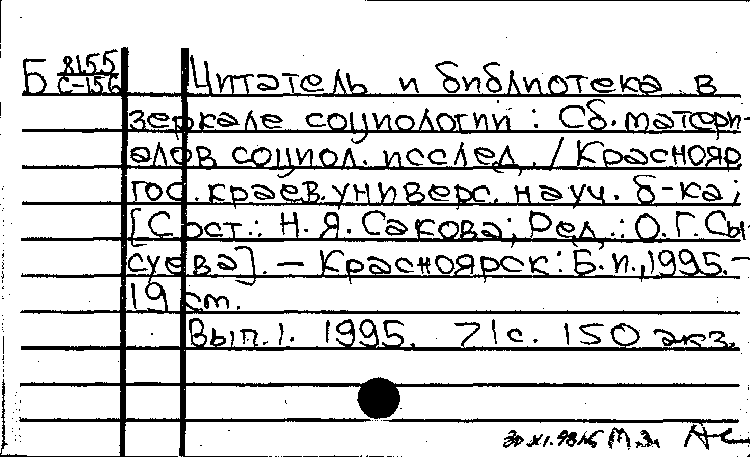 Б 8155 С-156 Читатель и библиотека в
зеркале социологии : Сб. матери-
алов социол. исслед. / Краснояр
гос. краев. универс. науч. б-ка;
[Сост.: Н. Я. Сакова; Ред.: О. Г. Сы-
суева]. — Красноярск : Б. и., 1995. —
19 cm.
Вып. 1. 1995. 71с. 150 экз.
м.з.